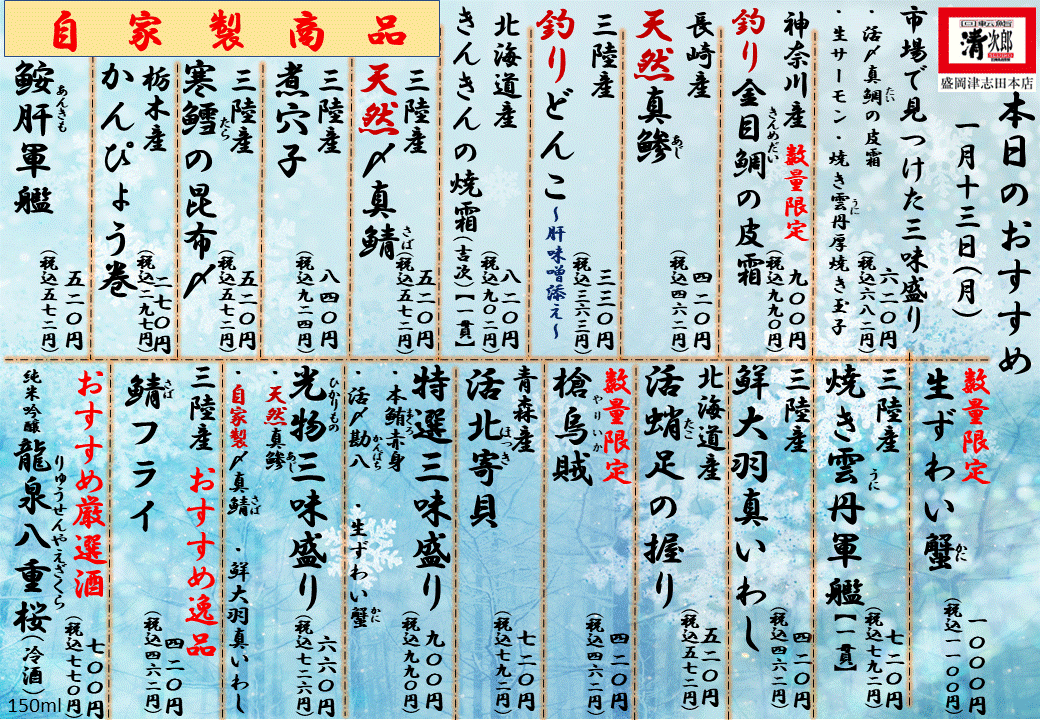 回転鮨
清次郎
盛岡津志田本店
本日のおすすめ
一月十三日(月)
市場で見つけた三味盛り
・活〆真鯛の皮霜
たい
・生サーモン・焼き雲丹厚焼き玉子
うに
六二〇円
(税込六八二円)
神奈川産 数量限定
釣り金目鯛の皮霜
きんめだい
九〇〇円
(税込九九〇円)
長崎産
天然真鯵
あじ
四二〇円
(税込四六二円)
三陸産
釣りどんこ~肝味噌添え~
三三〇円
(税込三六三円)
北海道産
きんきんの焼霜(吉次)【一貫】
八二〇円
(税込九〇二円)
自家製商品
三陸産
天然〆真鯖
さば
五二〇円
(税込五七二円)
三陸産
煮穴子
八四〇円
(税込九二四円)
三陸産
寒鱈の昆布〆
たら
五二〇円
(税込五七二円)
栃木産
かんぴょう巻
二七〇円
(税込二九七円)
鮟肝軍艦
あんきも
五二〇円
(税込五七二円)
数量限定
生ずわい蟹
かに
一〇〇〇円
(税込一一〇〇円)
三陸産
焼き雲丹軍艦【一貫】
うに
七二〇円
(税込七九二円)
三陸産
鮮大羽真いわし
四二〇円
(税込四六二円)
北海道産
活蛸足の握り
たこ
五二〇円
(税込五七二円)
数量限定
槍烏賊
やりいか
四二〇円
(税込四六二円)
青森産
活北寄貝
ほっき
七二〇円
(税込七九二円)
特選三味盛り
・本鮪赤身
まぐろ
・活〆勘八
かんぱち
・生ずわい蟹
かに
九〇〇円
(税込九九〇円)
光物三味盛り
ひかりもの
・天然真鯵
あじ
・自家製〆真鯖
さば
・鮮大羽真いわし
六六〇円
(税込七二六円)
おすすめ逸品
三陸産
鯖フライ
さば
四二〇円
(税込四六二円)
おすすめ厳選酒
純米吟醸 龍泉八重桜(冷酒)
りゅうせんやえざくら
七〇〇円
(税込七七〇円)
150ml